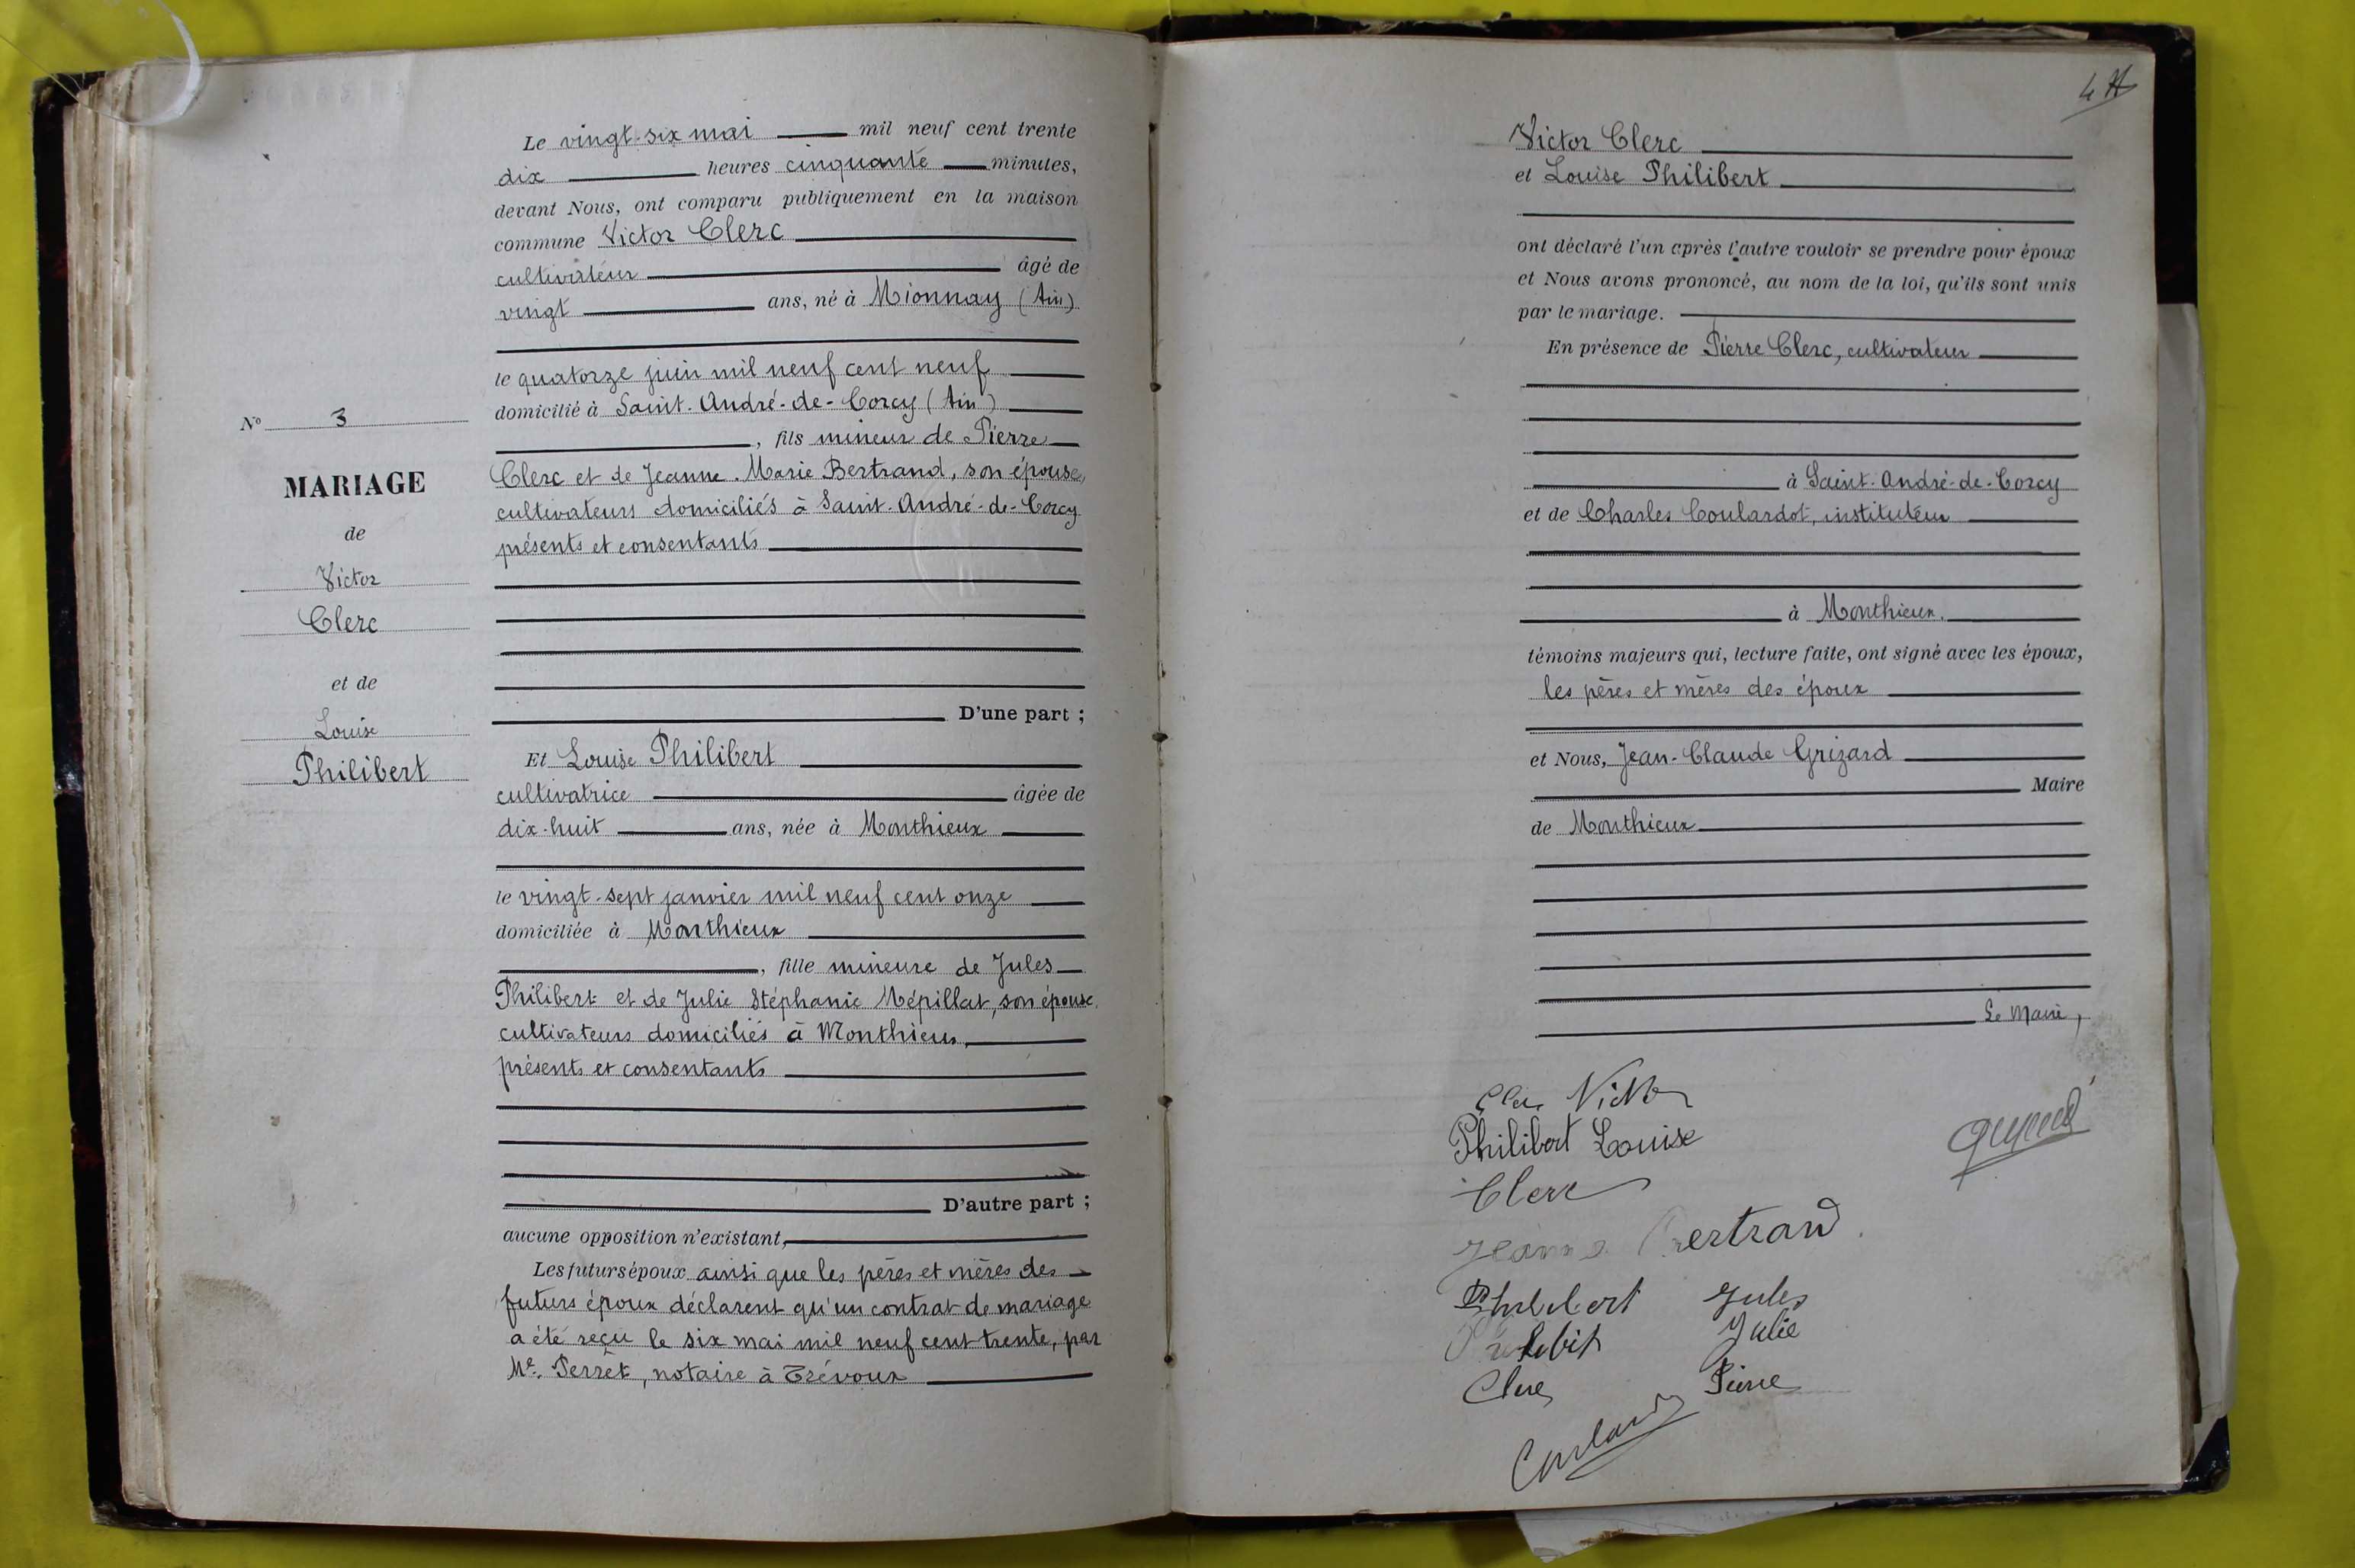 Le vingt-six mai mil neuf cent trente
dix heures cinquante minutes,
devant Nous, ont comparu publiquement en la maison
commune Victor Clerc
cultivateur âgé de
vingt ans, né à Mionnay (Ain)
le quatorze juin mil neuf cent neuf
domicilié à Saint-André-de-Corcy (Ain)
, fils mineur de Pierre
Clerc et de Jeanne-Marie Bertrand, son épouse,
cultivateurs domiciliés à Saint-André-de-Corcy
présents et consentants
D'une part ;
Nº 3
MARIAGE
de
Victor
Clerc
et de
Louise
Philibert
Et Louise Philibert
cultivatrice âgée de
dix-huit ans, née à Monthieux
le vingt-sept janvier mil neuf cent onze
domiciliée à Monthieux
, fille mineure de Jules
Philibert et de Julie Stéphanie Mépillat, son épouse
cultivateurs domiciliés à Monthieux,
présents et consentants
D'autre part ;
aucune opposition n'existant,
Les futurs époux ainsi que les pères et mères des
futurs époux déclarent qu'un contrat de mariage
a été reçu le six mai mil neuf cent trente, par
Me. Perret, notaire à Trévoux
Victor Clerc
et Louise Philibert
ont déclaré l'un après l'autre vouloir se prendre pour époux
et Nous avons prononcé, au nom de la loi, qu'ils sont unis
par le mariage.
En présence de Pierre Clerc, cultivateur
à Saint-André-de-Corcy
et de Charles Coulardot, instituteur
à Monthieux.
témoins majeurs qui, lecture faite, ont signé avec les époux,
les pères et mères des époux
et Nous, Jean-Claude Grizard
Maire
de Monthieux
Le Maire,
Clerc Victor
Philibert Louise
Clerc
Jeanne Bertrand
Philibert Jules
Julie
Clerc Pierre